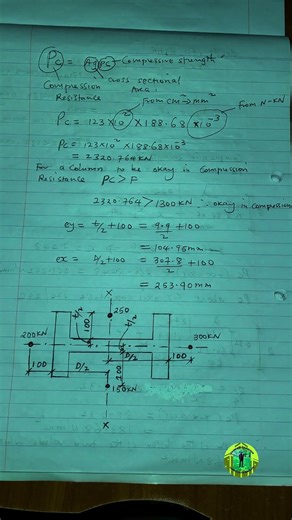 Pc = Ag Pc - Compressive strength
Compression Resistance
cross sectional Area.
from cm² → mm²
from N-KN
Pc = 123 x 10² x 188.68 x 10⁻³
Pc = 123 x 10² x 188.68 x 10⁻³
= 2320.764KN
For a column to be okay in compression
Resistance PC > F
2320.764 > 1300KN ∴ okay in compression
ey = t/2 + 100 = 9.9/2 + 100
= 104.95mm
ex = D/2 + 100 = 307.8/2 + 100
= 253.90mm
X
250
t/2
100
t/2
200KN
300KN
100
D/2
D/2
100
100
150KN
X